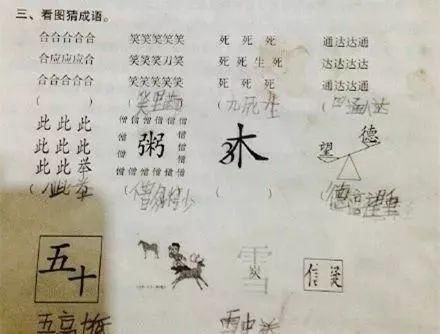 三、看图猜成语。
合合合合合 笑笑笑笑笑 死 死 死 通达达通
合应应应合 笑笑笑刀笑 死 死 生 死 达达达达
合合合合合 笑笑笑笑笑 死 死 死 通达达通
( ) (笑里 ) (九死一生 (四通八达
此 此 此 僧 僧 僧 僧 僧 德
此 此 此 僧 粥 僧 木 望
此 此 举 僧 僧 僧 僧 僧
( 此举 (僧多粥少 ( (德高望重
五十 雪 炭 信 疑
雪中